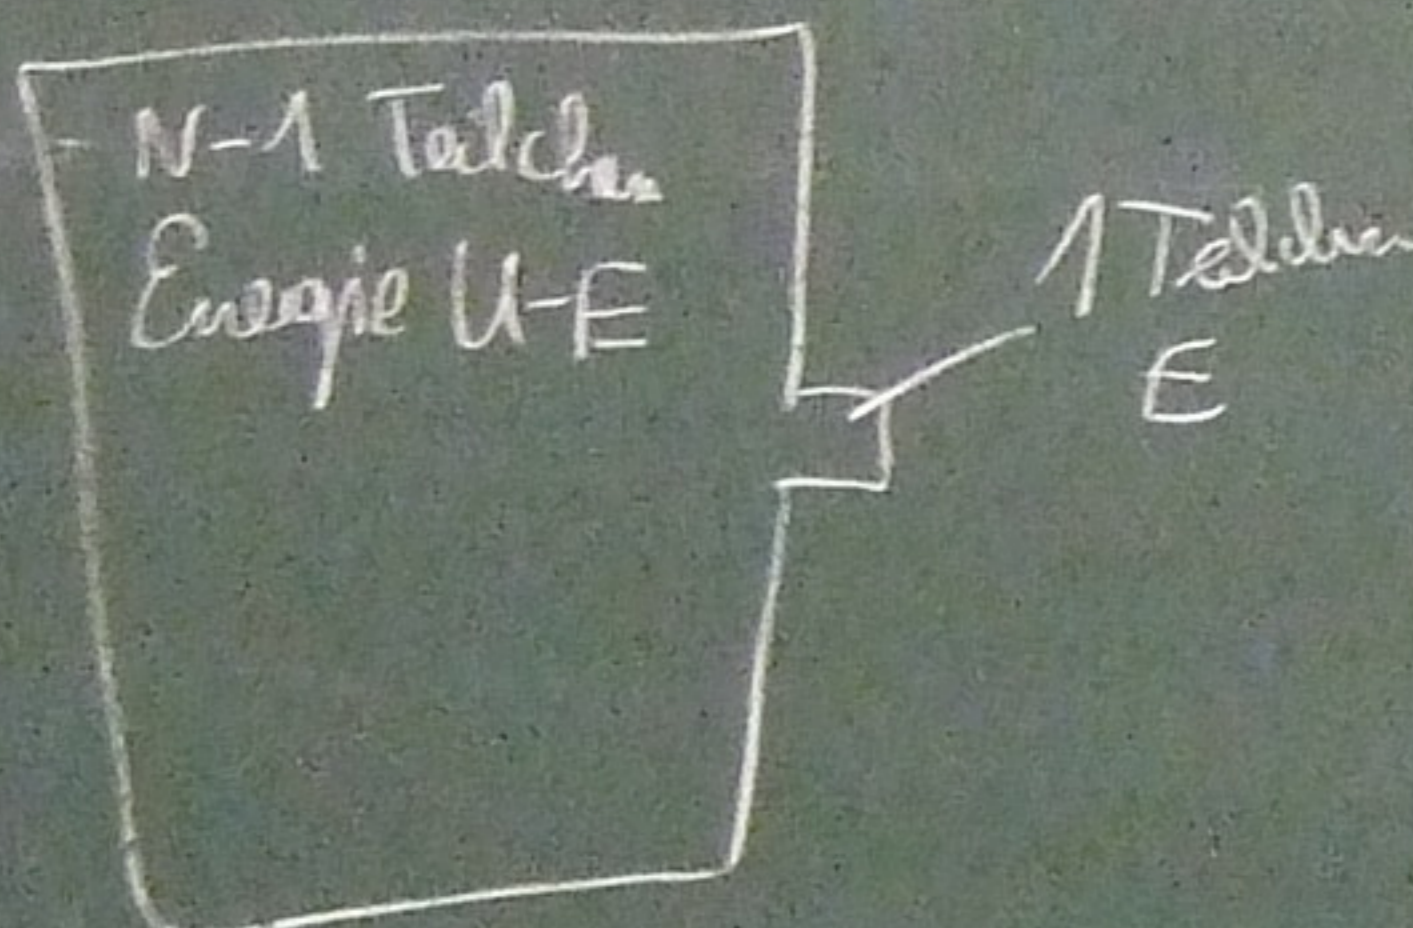 N-1 Teilchen
Energie U-E
1 Teilchen
E